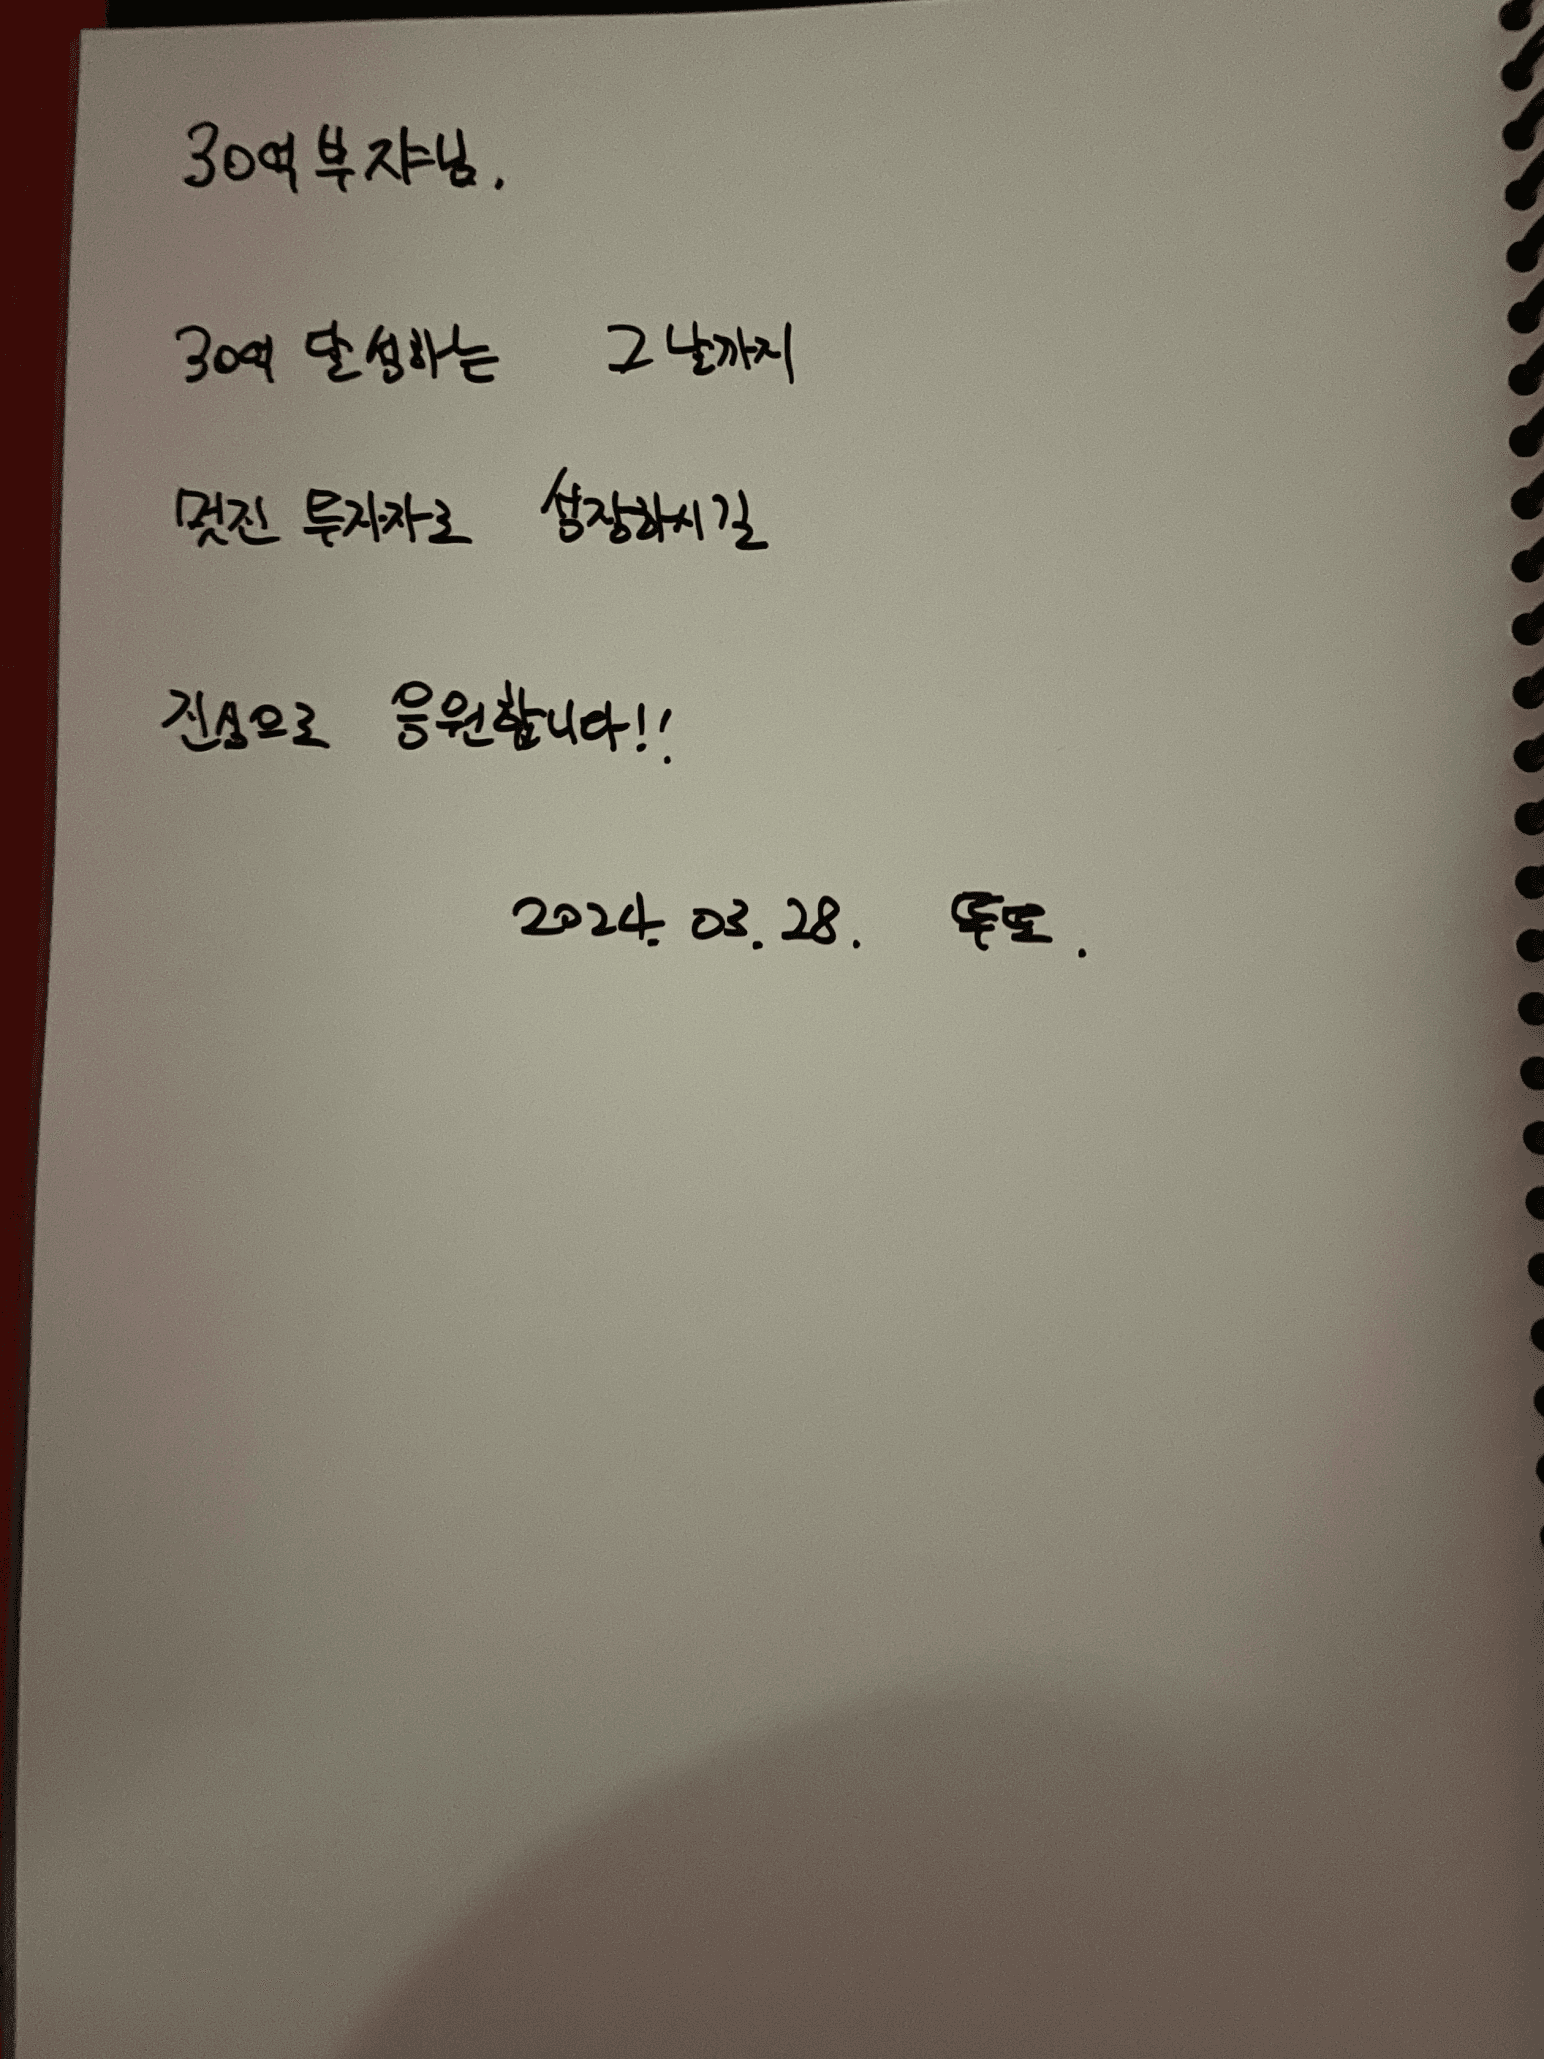 30억부쟈님.
30억 달성하는 그날까지
멋진 투자자로 성장하시길
진심으로 응원합니다!!
2024. 03. 28. 뚜또.